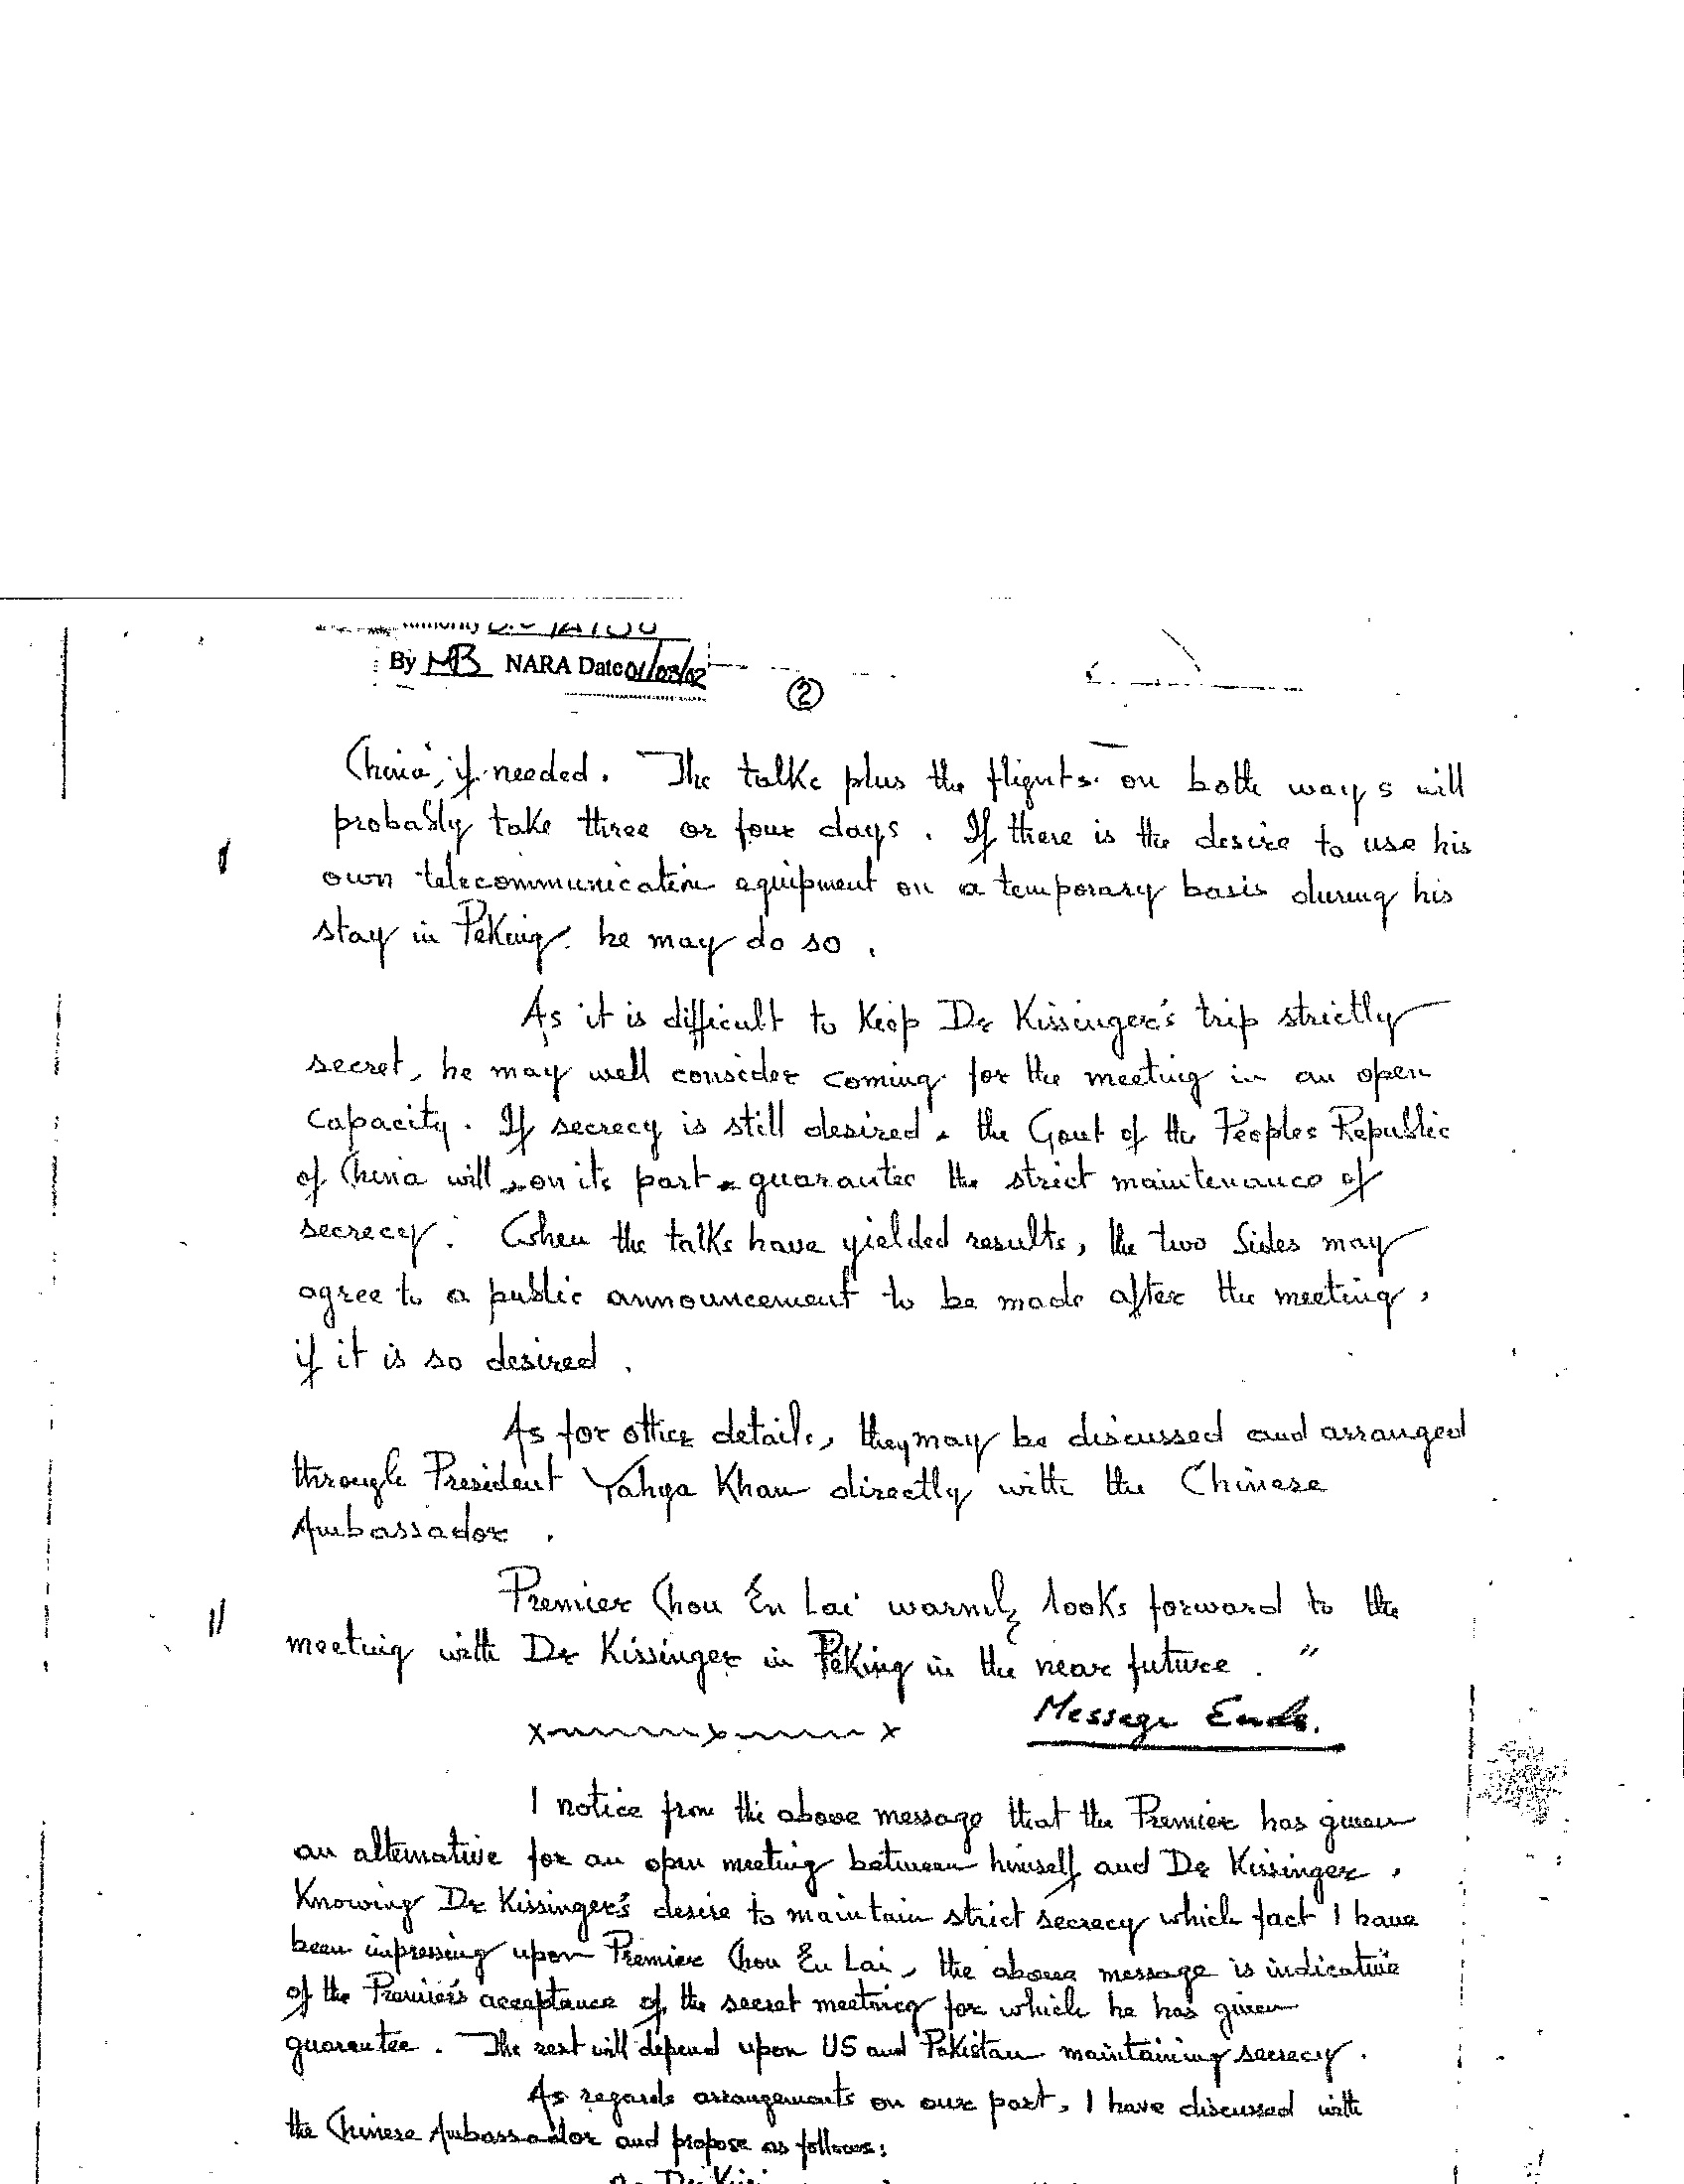 By MB NARA Date 01/03/02
②
China, if needed. The talks plus the flights on both ways will
probably take three or four days. If there is the desire to use his
own telecommunication equipment on a temporary basis during his
stay in Peking. he may do so.
As it is difficult to keep Dr Kissinger's trip strictly
secret, he may well consider coming for the meeting in an open
capacity. If secrecy is still desired, the Govt of the Peoples Republic
of China will, on its part, guarantee the strict maintenance of
secrecy. When the talks have yielded results, the two Sides may
agree to a public announcement to be made after the meeting,
if it is so desired.
As for other details, they may be discussed and arranged
through President Yahya Khan directly with the Chinese
Ambassador.
Premier Chou En Lai warmly looks forward to the
meeting with Dr Kissinger in Peking in the near future."
Message Ends.
x~~~~x~~~~x
I notice from the above message that the Premier has given
an alternative for an open meeting between himself and Dr Kissinger.
Knowing Dr Kissinger's desire to maintain strict secrecy which fact I have
been impressing upon Premier Chou En Lai, the above message is indicative
of the Premier's acceptance of the secret meeting for which he has given
guarantee. The rest will depend upon US and Pakistan maintaining secrecy.
As regards arrangements on our part, I have discussed with
the Chinese Ambassador and propose as follows: